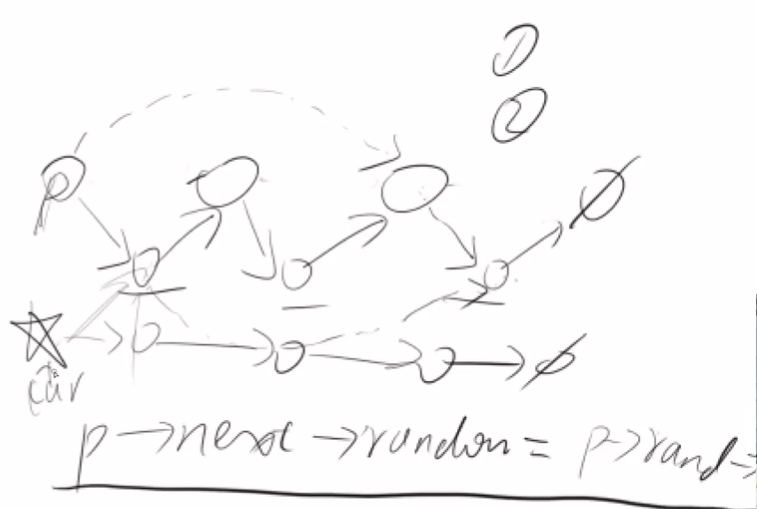 ①
②
p
∅
∅
cur
p→next→random = p→rand→